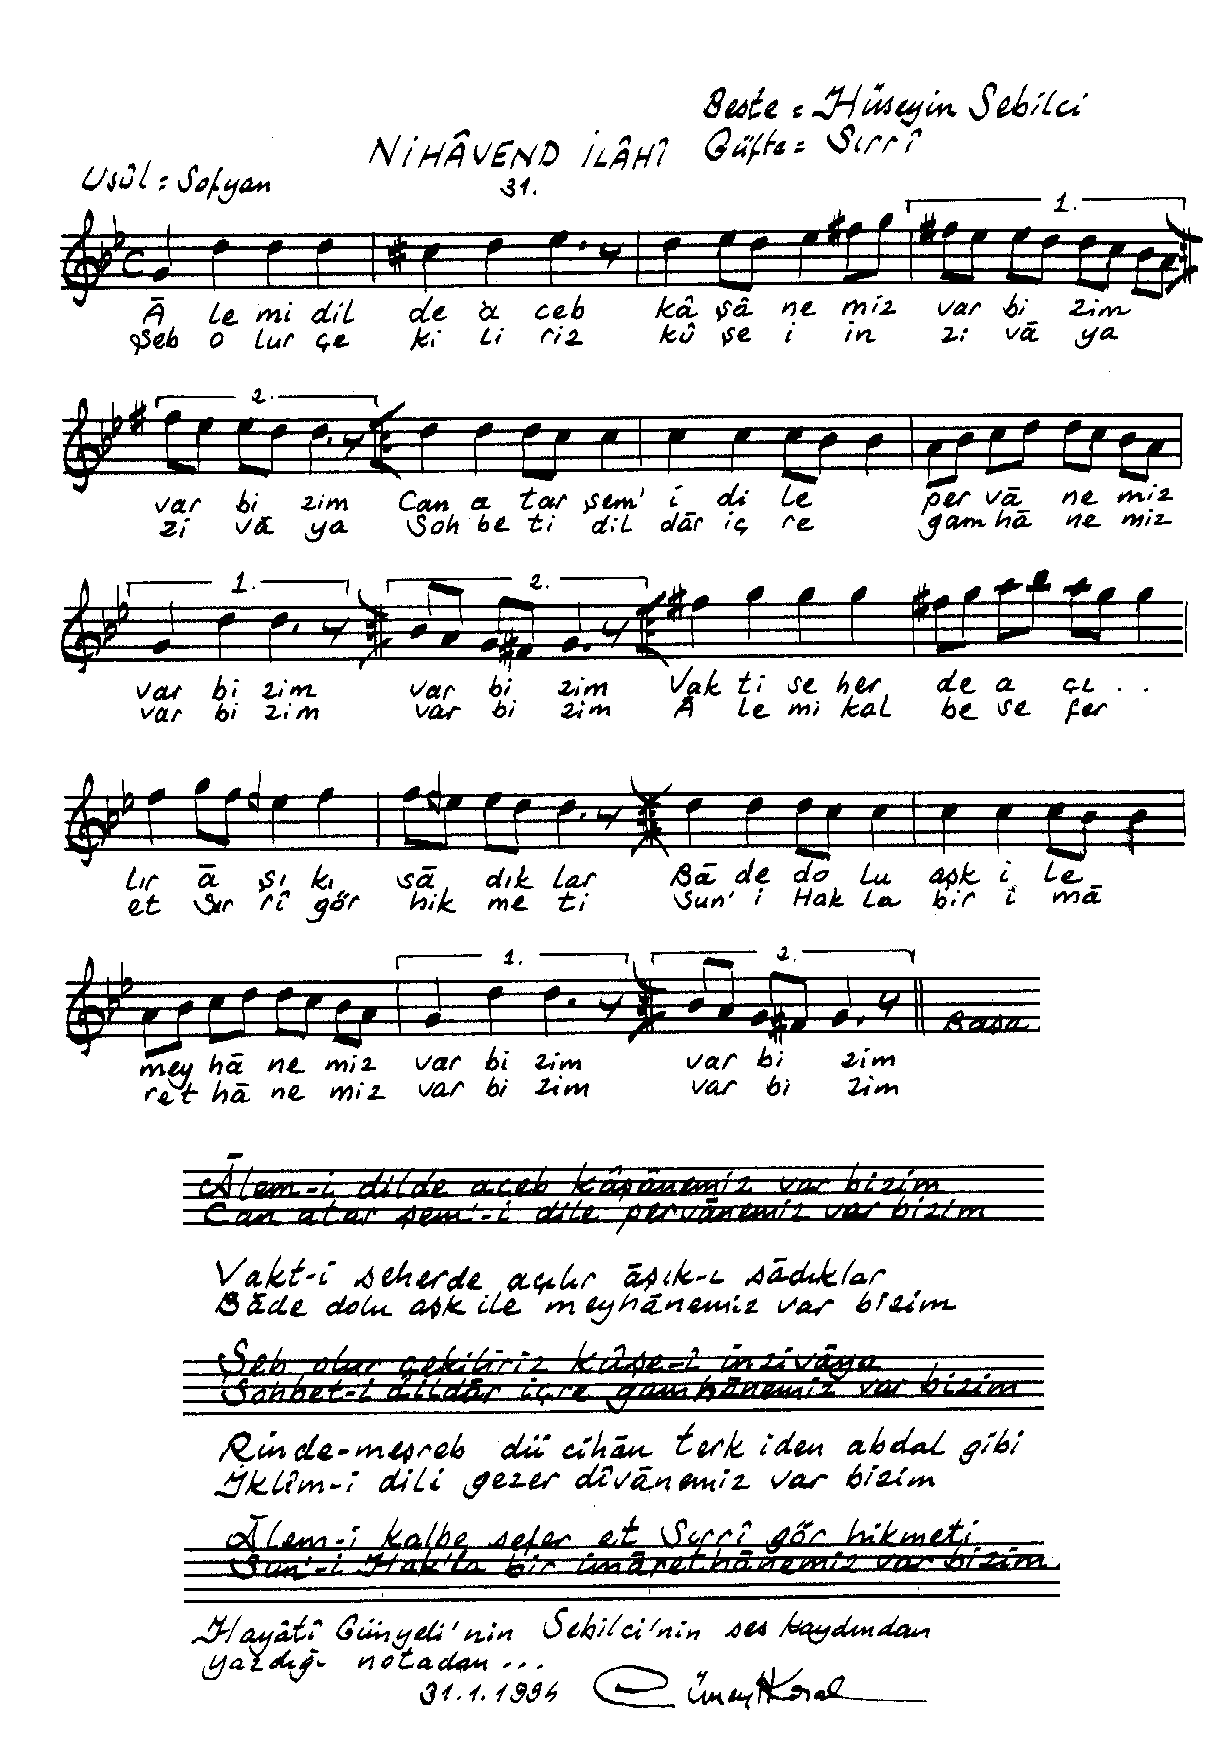 Beste = Hüseyin Sebilci
NİHÂVEND İLÂHÎ Güfte = Sırrî
Usûl = Sofyan
31.
1.
Ā le mi dil de a ceb kâ şâ ne miz var bi zim
Şeb o lur çe ki li riz kû şe i in zi vā ya
2.
var bi zim Can a tar şem' i di le per vā ne miz
zi vā ya Soh be ti dil dār iç re gam hā ne miz
1. 2.
var bi zim var bi zim Vak ti se her de a çı . .
var bi zim var bi zim Ā le mi kal be se fer
lır ā şı kı sā dık lar Bā de do lu aşk i le
et Sır rî gör hik me ti Sun' i Hak la bir i mā
1. 2.
Başa
mey hā ne miz var bi zim var bi zim
ret hā ne miz var bi zim var bi zim
Ālem-i dilde aceb kâşânemiz var bizim
Can atar şem'-i dile pervānemiz var bizim
Vakt-i seherde açılır āşık-ı sādıklar
Bāde dolu aşk ile meyhānemiz var bizim
Şeb olur çekiliriz kûşe-i inzivāya
Sohbet-i dildār içre gamhānemiz var bizim
Rinde-meşreb dü cihān terk iden abdal gibi
İklîm-i dili gezer dîvānemiz var bizim
Ālem-i kalbe sefer et Sırrî gör hikmeti
Sun'-i Hak'la bir imārethānemiz var bizim
Hayâtî Günyeli'nin Sebilci'nin ses kaydından
yazdığı notadan ...
31.1.1994 Cüneyt Kosal